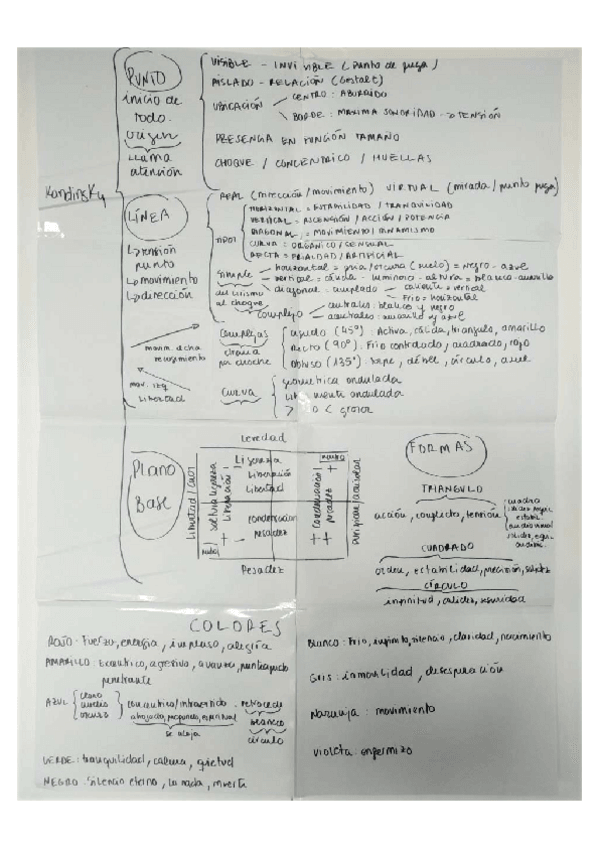 Kandinsky
PUNTO
inicio de
todo.
origen
LLama
atención
VISIBLE - INVISIBLE (Punto de fuga)
AISLADO - RELACIÓN (Gestalt)
UBICACIÓN
CENTRO : ABURRIDO
BORDE : MAXIMA SONORIDAD -> TENSIÓN
PRESENCIA EN FUNCIÓN TAMAÑO
CHOQUE / CONCÉNTRICO / HUELLAS
LÍNEA
tensión
punto
movimiento
dirección
REAL (Dirección/movimiento) VIRTUAL (mirada / punto fuga)
TIPOS
HORIZONTAL = ESTABILIDAD / TRANQUILIDAD
VERTICAL = ASCENSIÓN / ACCIÓN / POTENCIA
DIAGONAL = MOVIMIENTO / DINAMISMO
CURVA : ORGÁNICO / SENSUAL
RECTA = FRIALDAD / ARTIFICIAL
Simple
horizontal = fría/oscura (suelo) = Negro - azul
vertical = cálida - luminoso - altura = blanco - amarillo
diagonal : templado
caliente = vertical
Frio = horizontal
del lirismo
al choque
Complejo
centrales : blanco y negro
acentrales : amarillo y azul
movim. dcha
mov. izq
Libertad
Complejas
drama
por choche
agudo (45°) : Activa, cálida, triangulo, amarillo
recto (90°) : Frio controlado, cuadrado, rojo
obtuso (135°) : torpe, débil, círculo, azul
CURVA
geometrica ondulada
Libremente ondulada
> o < grosor
Plano
Base
Levedad
Libertad / Cuor
Ligereza
Liberación
Libertad
condensacion
pesadez
condensación
pesadez
Pesadez
FORMAS
TRIANGULO
acción, conflicto, tensión
CUADRADO
orden, estabilidad, precisión, solidez
CÍRCULO
infinitud, calidez, seguridad
COLORES
ROJO : Fuerza, energía, impulso, alegría
AMARILLO : Excentrico, agresivo, avanza, puntiagudo
penetrante
AZUL
claro
medio
oscuro
concentrico/introvertido - retrocede
alejado, profundo, espiritual
se aleja
blanco
círculo
VERDE : tranquilidad, calma, quietud
NEGRO : Silencio eterno, la nada, muerte
Blanco : Frio, infinito, silencio, claridad, nacimiento
Gris : inmovilidad, desesperación
Naranja : movimiento
Violeta : enfermizo